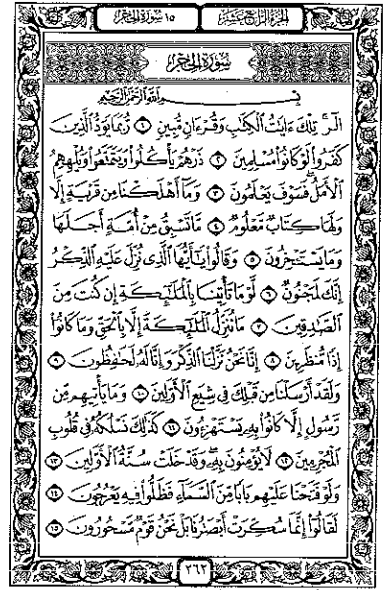 الجزء الرابع عشر
١٥ سورة الحجر
سورة الحجر
بسم الله الرحمن الرحيم
الٓر تِلْكَ ءَايَٰتُ ٱلْكِتَٰبِ وَقُرْءَانٍ مُّبِينٍ ١ رُّبَمَا يَوَدُّ ٱلَّذِينَ
كَفَرُوا۟ لَوْ كَانُوا۟ مُسْلِمِينَ ٢ ذَرْهُمْ يَأْكُلُوا۟ وَيَتَمَتَّعُوا۟ وَيُلْهِهِمُ
ٱلْأَمَلُ فَسَوْفَ يَعْلَمُونَ ٣ وَمَآ أَهْلَكْنَا مِن قَرْيَةٍ إِلَّا
وَلَهَا كِتَابٌ مَّعْلُومٌ ٤ مَّا تَسْبِقُ مِنْ أُمَّةٍ أَجَلَهَا
وَمَا يَسْتَـْٔخِرُونَ ٥ وَقَالُوا۟ يَٰٓأَيُّهَا ٱلَّذِى نُزِّلَ عَلَيْهِ ٱلذِّكْرُ
إِنَّكَ لَمَجْنُونٌ ٦ لَّوْ مَا تَأْتِينَا بِٱلْمَلَٰٓئِكَةِ إِن كُنتَ مِنَ
ٱلصَّٰدِقِينَ ٧ مَا نُنَزِّلُ ٱلْمَلَٰٓئِكَةَ إِلَّا بِٱلْحَقِّ وَمَا كَانُوٓا۟
إِذًا مُّنظَرِينَ ٨ إِنَّا نَحْنُ نَزَّلْنَا ٱلذِّكْرَ وَإِنَّا لَهُۥ لَحَٰفِظُونَ ٩
وَلَقَدْ أَرْسَلْنَا مِن قَبْلِكَ فِى شِيَعِ ٱلْأَوَّلِينَ ١٠ وَمَا يَأْتِيهِم مِّن
رَّسُولٍ إِلَّا كَانُوا۟ بِهِۦ يَسْتَهْزِءُونَ ١١ كَذَٰلِكَ نَسْلُكُهُۥ فِى قُلُوبِ
ٱلْمُجْرِمِينَ ١٢ لَا يُؤْمِنُونَ بِهِۦ وَقَدْ خَلَتْ سُنَّةُ ٱلْأَوَّلِينَ ١٣
وَلَوْ فَتَحْنَا عَلَيْهِم بَابًا مِّنَ ٱلسَّمَآءِ فَظَلُّوا۟ فِيهِ يَعْرُجُونَ ١٤
لَقَالُوٓا۟ إِنَّمَا سُكِّرَتْ أَبْصَٰرُنَا بَلْ نَحْنُ قَوْمٌ مَّسْحُورُونَ ١٥
٢٦٢